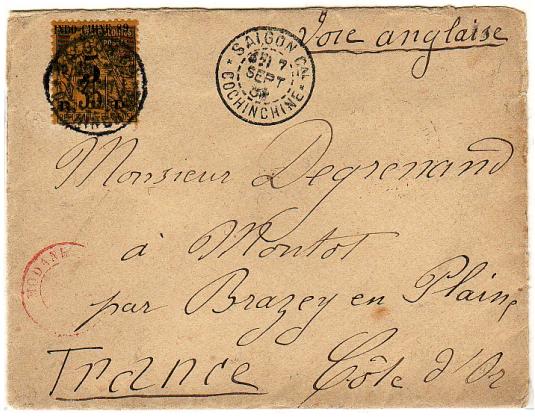 INDO-CHINE 89.
5
35
SAIGON CNE
7
SEPT
COCHINCHINE
Voie anglaise
Monsieur Degrenand
à Montot
par Brazey en Plaine
France Côte d'Or
MODANE